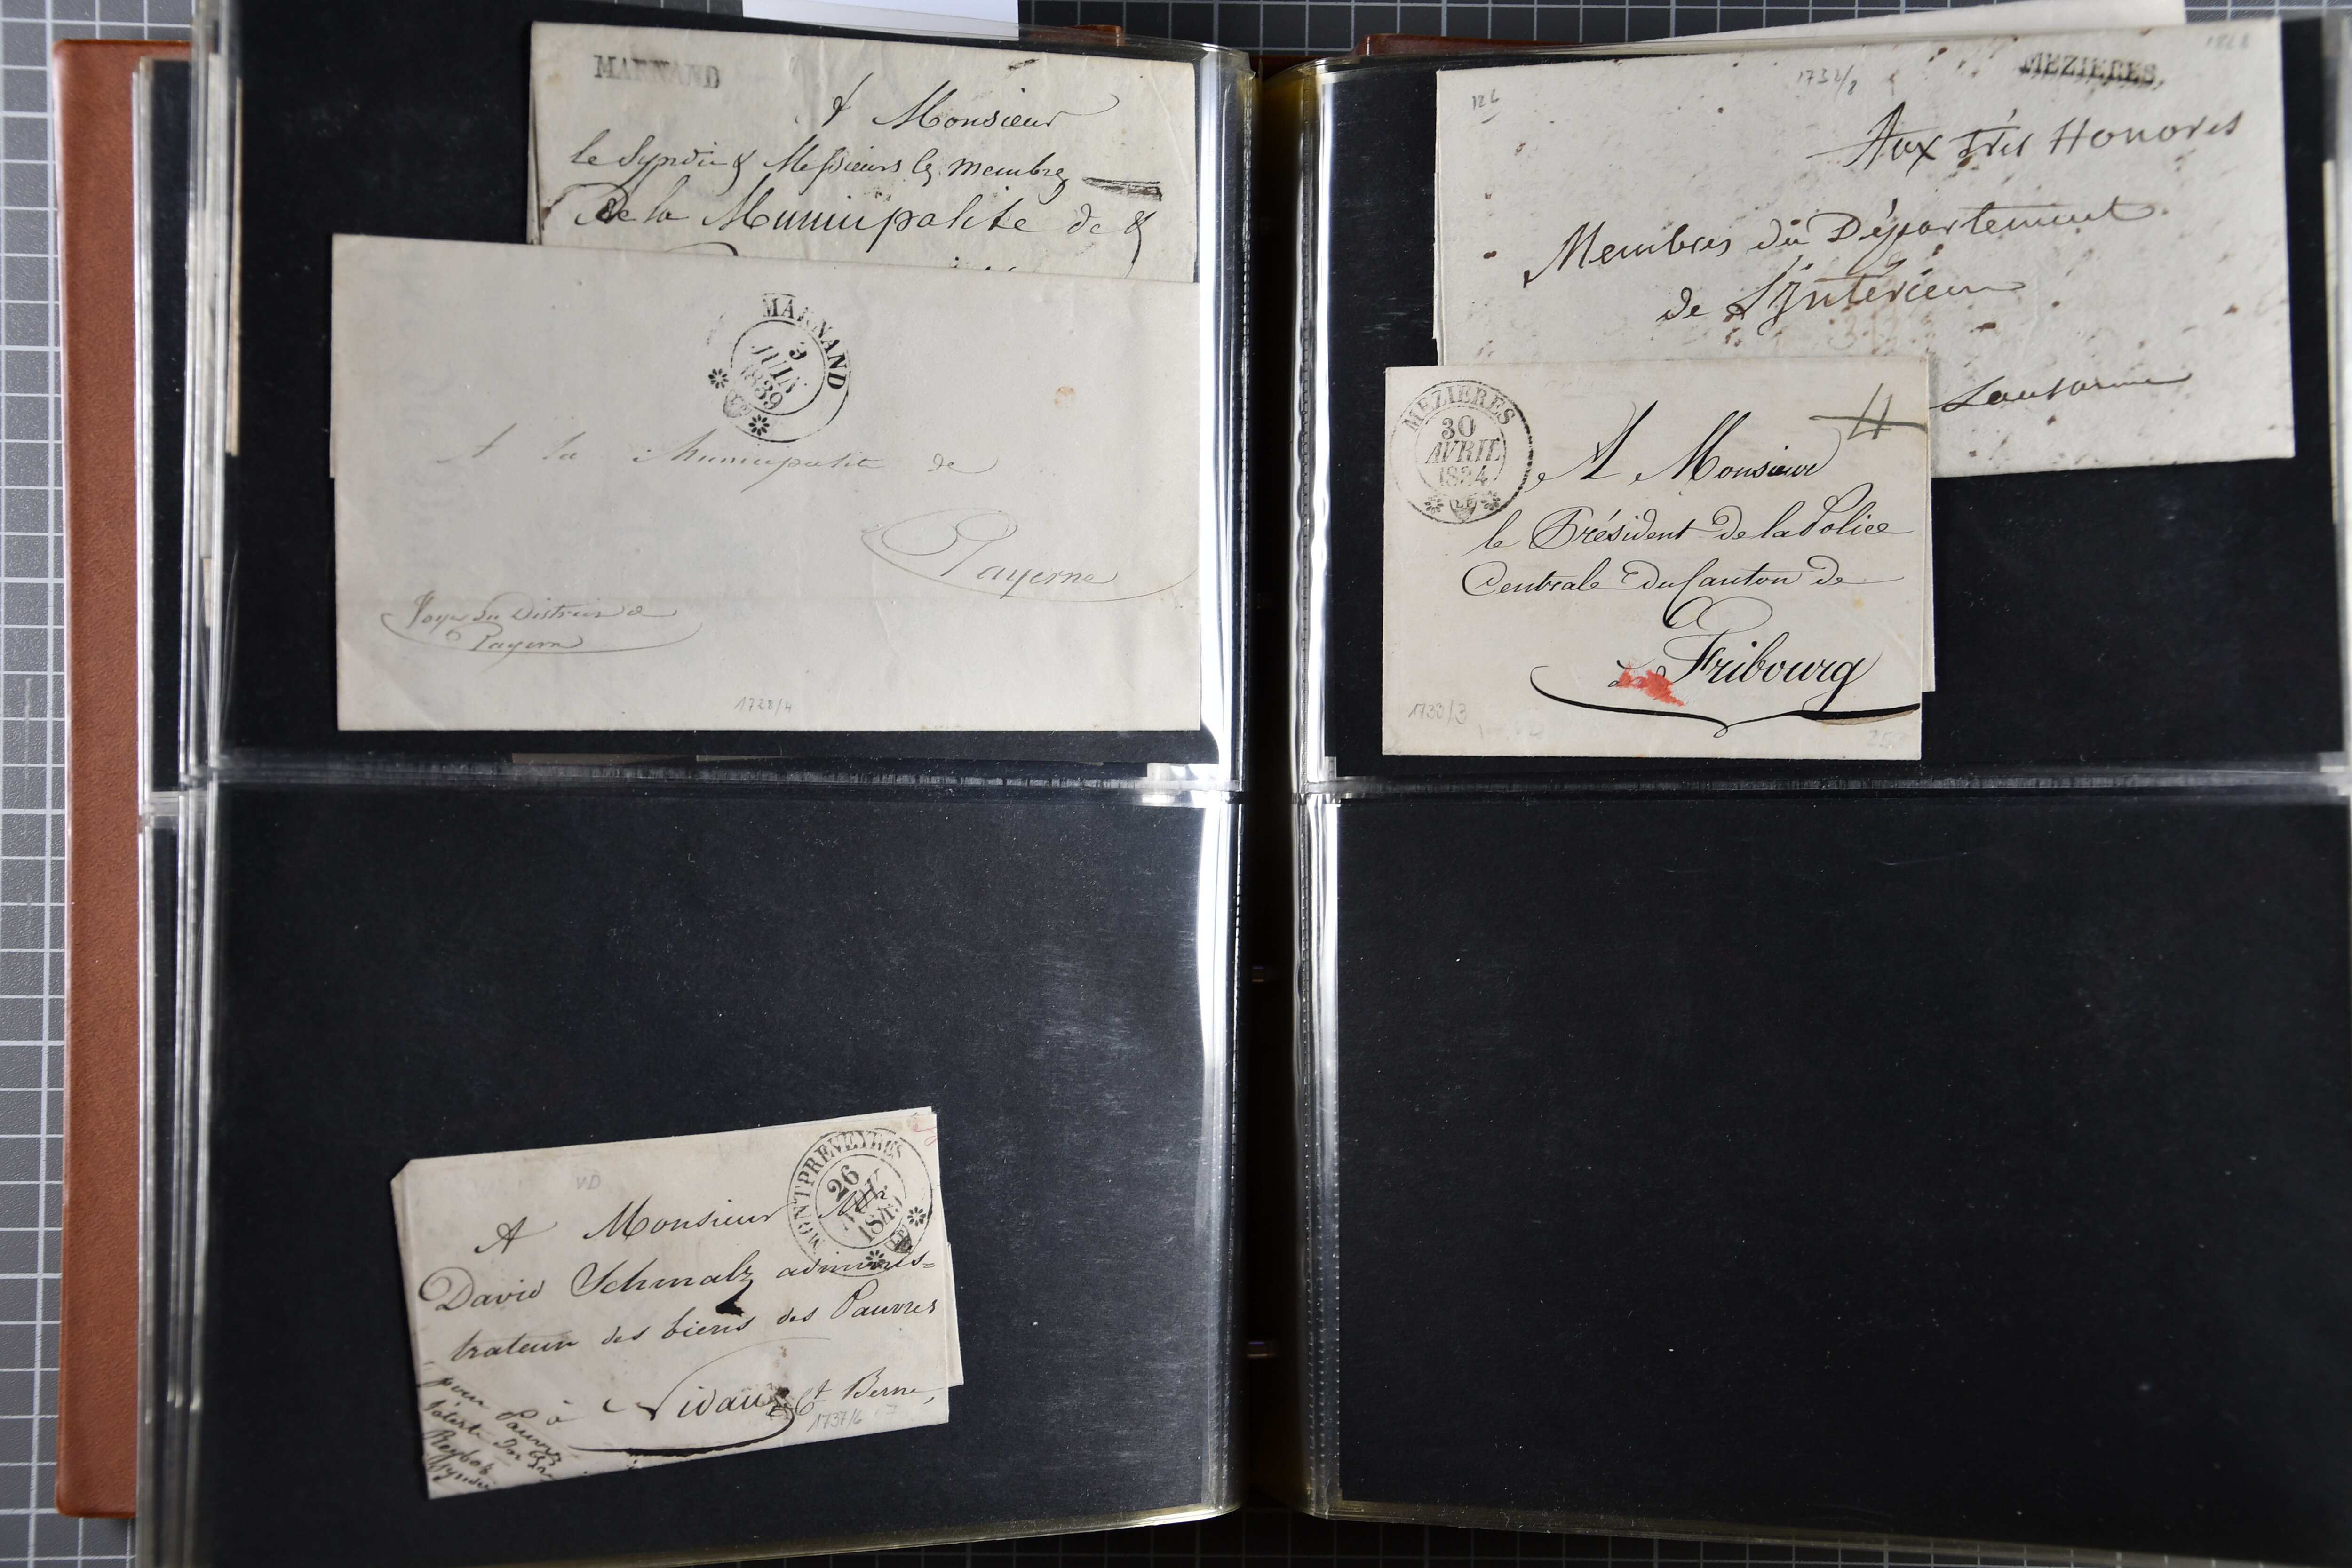 MARNAND
A Monsieur
le Syndic & Messieurs les membres
De la Municipalité de &
MARNAND
9
JUIN
1839
A la Municipalité de
Payerne
Voyer du District de
Payerne
1728/4
126
1732/2
1828
MEZIERES.
Aux Très Honorés
Membres du Département
de L'Intérieur
Lausanne
MEZIERES
30
AVRIL
1834
4
A Monsieur
le Président de la Police
Centrale Du Canton de
à Fribourg
1733/3
VD
MONTPREVEYRES
26
184
A Monsieur
David Schmalz adminis=
trateur des biens des Pauvres
à Nidau Ct Berne,
1737/6
pour Pauvres